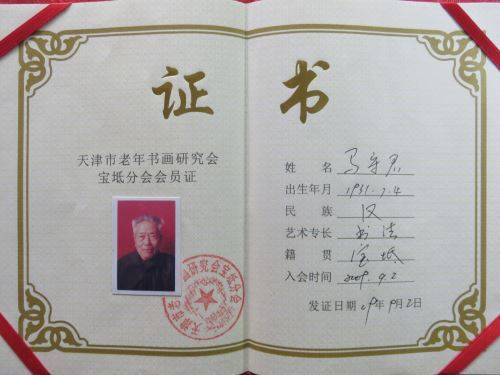 证书
天津市老年书画研究会
宝坻分会会员证
天津市老年书画研究会宝坻分会
姓 名 马守君
出生年月 1931.7.4
民 族 汉
艺术专长 书法
籍 贯 宝坻
入会时间 2009.9.2
发证日期 09年9月2日